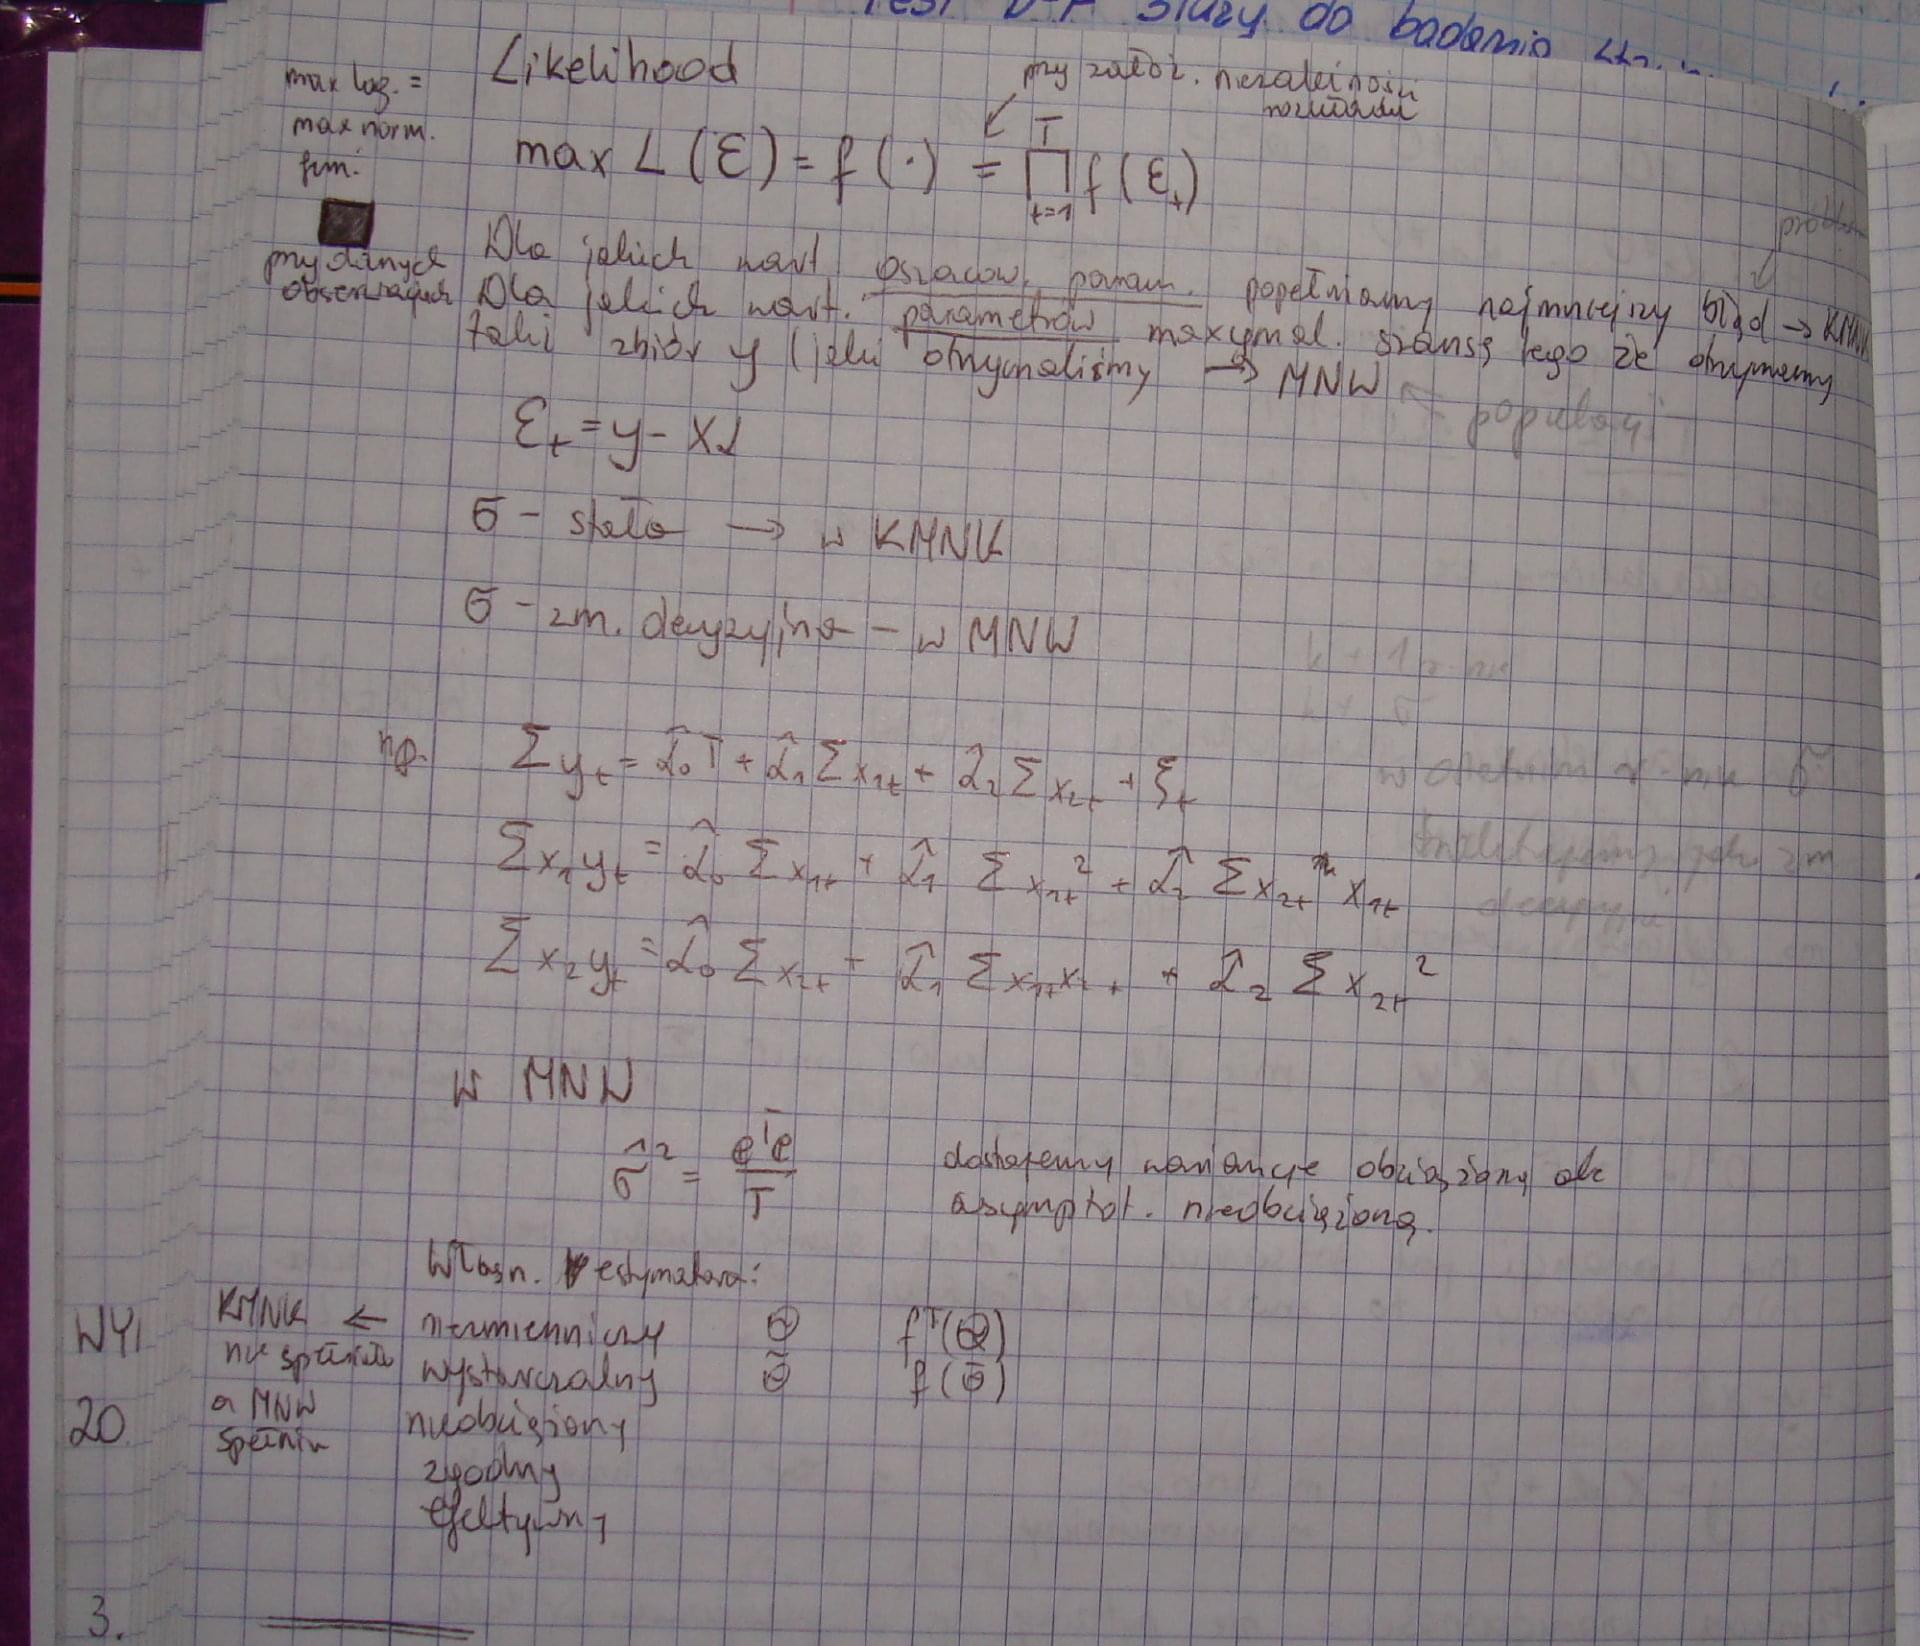 Test D-F służy do badania
Likelihood
max log. =
max norm.
przy załoz. niezależności
rozkładu
max L(ε) = f(·) = ∏ f(ε_t)
T
t=1
przy danych
obserwacjach
Dla jakich wart. oszacow. param. popełniamy najmniejszy błąd → KMNK
Dla jakich wart. parametrów maxymal. szansę tego że otrzymamy
taki zbiór y (jaki otrzymaliśmy → MNW
populacji
ε_t = y - xα
σ - stała → w KMNK
σ - zm. decyzyjna - w MNW
k + 1
w ostatnim σ
np. Σy_t = α̂₀T + α̂₁Σx₁t + α̂₂Σx₂t + ξ_t
Σx₁y_t = α̂₀Σx₁t + α̂₁Σx₁t² + α̂₂Σx₂t x₁t
Σx₂y_t = α̂₀Σx₂t + α̂₁Σx₁tx₂t + α̂₂Σx₂t²
w MNW
σ̂² = eᵀe / T
dostajemy wariancję obciążoną ale
asymptot. nieobciążoną.
Własn. estymatora:
KMNK ← niezmienniczy Θ fᵀ(Θ)
nie spełnia wystarczalny Θ̃ f(Θ̃)
a MNW nieobciążony
spełnia
zgodny
efektywny
WYI
20
3.